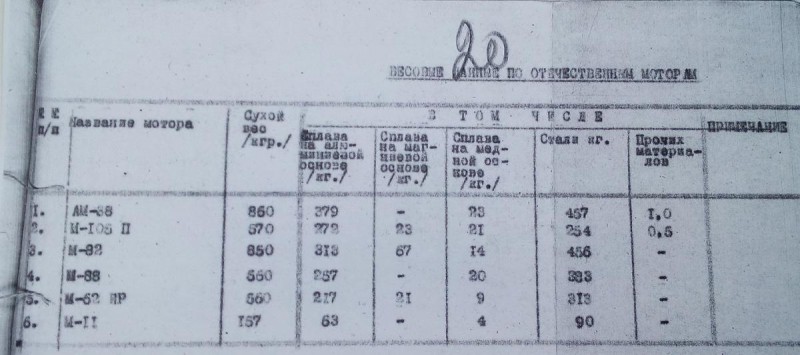 20
ВЕСОВЫЕ ДАННЫЕ ПО ОТЕЧЕСТВЕННЫМ МОТОРАМ
№ №
п/п
Название мотора
Сухой
вес
/кгр./
В ТОМ ЧИСЛЕ
Сплава
на алю-
миниевой
основе
/кг./
Сплава
на маг-
ниевой
основе
/кг./
Сплава
на мед-
ной ос-
нове
/кг./
Стали кг.
Прочих
материа-
лов
ПРИМЕЧАНИЕ
1. АМ-38 860 379 - 23 457 1,0
2. М-105 П 570 272 23 21 254 0,5
3. М-82 850 313 67 14 456 -
4. М-88 660 257 - 20 383 -
5. М-62 ИР 560 217 21 9 313 -
6. М-11 157 63 - 4 90 -